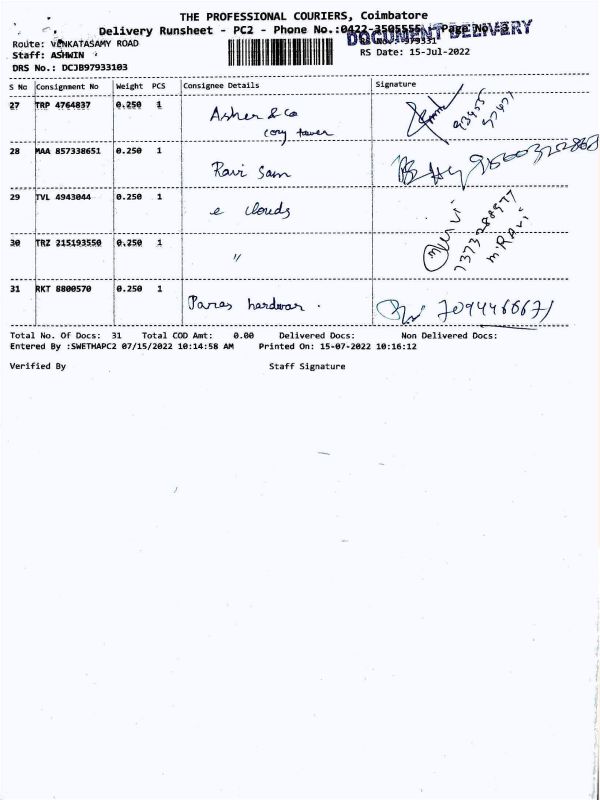 THE PROFESSIONAL COURIERS, Coimbatore
Delivery Runsheet - PC2 - Phone No.:0422-3505555 - Page No. 3
DOCUMENT DELIVERY
Route: VENKATASAMY ROAD
Staff: ASHWIN RS Date: 15-Jul-2022
DRS No.: DCJB97933103
S No Consignment No Weight PCS Consignee Details Signature
27 TRP 4764837 0.250 1 Asher & Co
cory tower
28 MAA 857338651 0.250 1 Ravi Sam
29 TVL 4943044 0.250 1 e clouds
30 TRZ 215193550 0.250 1 〃
7373288977
M. RAVI
31 RKT 8800570 0.250 1 Paras hardwar . 7094466671
Total No. Of Docs: 31 Total COD Amt: 0.00 Delivered Docs: Non Delivered Docs:
Entered By :SWETHAPC2 07/15/2022 10:14:58 AM Printed On: 15-07-2022 10:16:12
Verified By Staff Signature